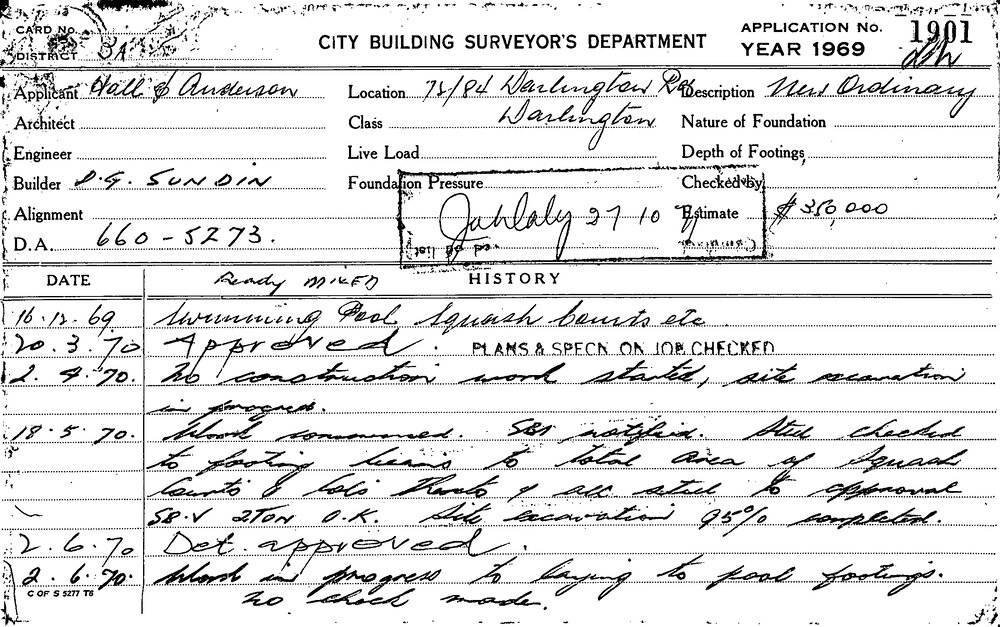 CARD No.
DISTRICT
CITY BUILDING SURVEYOR'S DEPARTMENT
APPLICATION No. 1901
YEAR 1969
Applicant Hall & Anderson
Location 73/84 Darlington Rd
Darlington
Description New Ordinary
Architect
Class
Nature of Foundation
Engineer
Live Load
Depth of Footings
Builder D.G. SUNDIN
Foundation Pressure
Checked by
Alignment
27 10
Estimate $350,000
D.A. 660-5273.
DATE
Ready MIXED
HISTORY
16.12.69 Swimming Pool Squash Courts etc
20.3.70 Approved. PLANS & SPECN. ON JOB CHECKED
2.4.70. No construction work started, site excavation
in progress.
18.5.70. Work commenced. notified. Steel checked
to footing beams to total area of Squash
Courts & cols thereto & all steel to approval
SB.V 2TON O.K. Site excavation 95% completed.
2.6.70 Det. approved.
2.6.70. Work in progress to laying to pool footings.
No check made.
C OF S 5277 T6